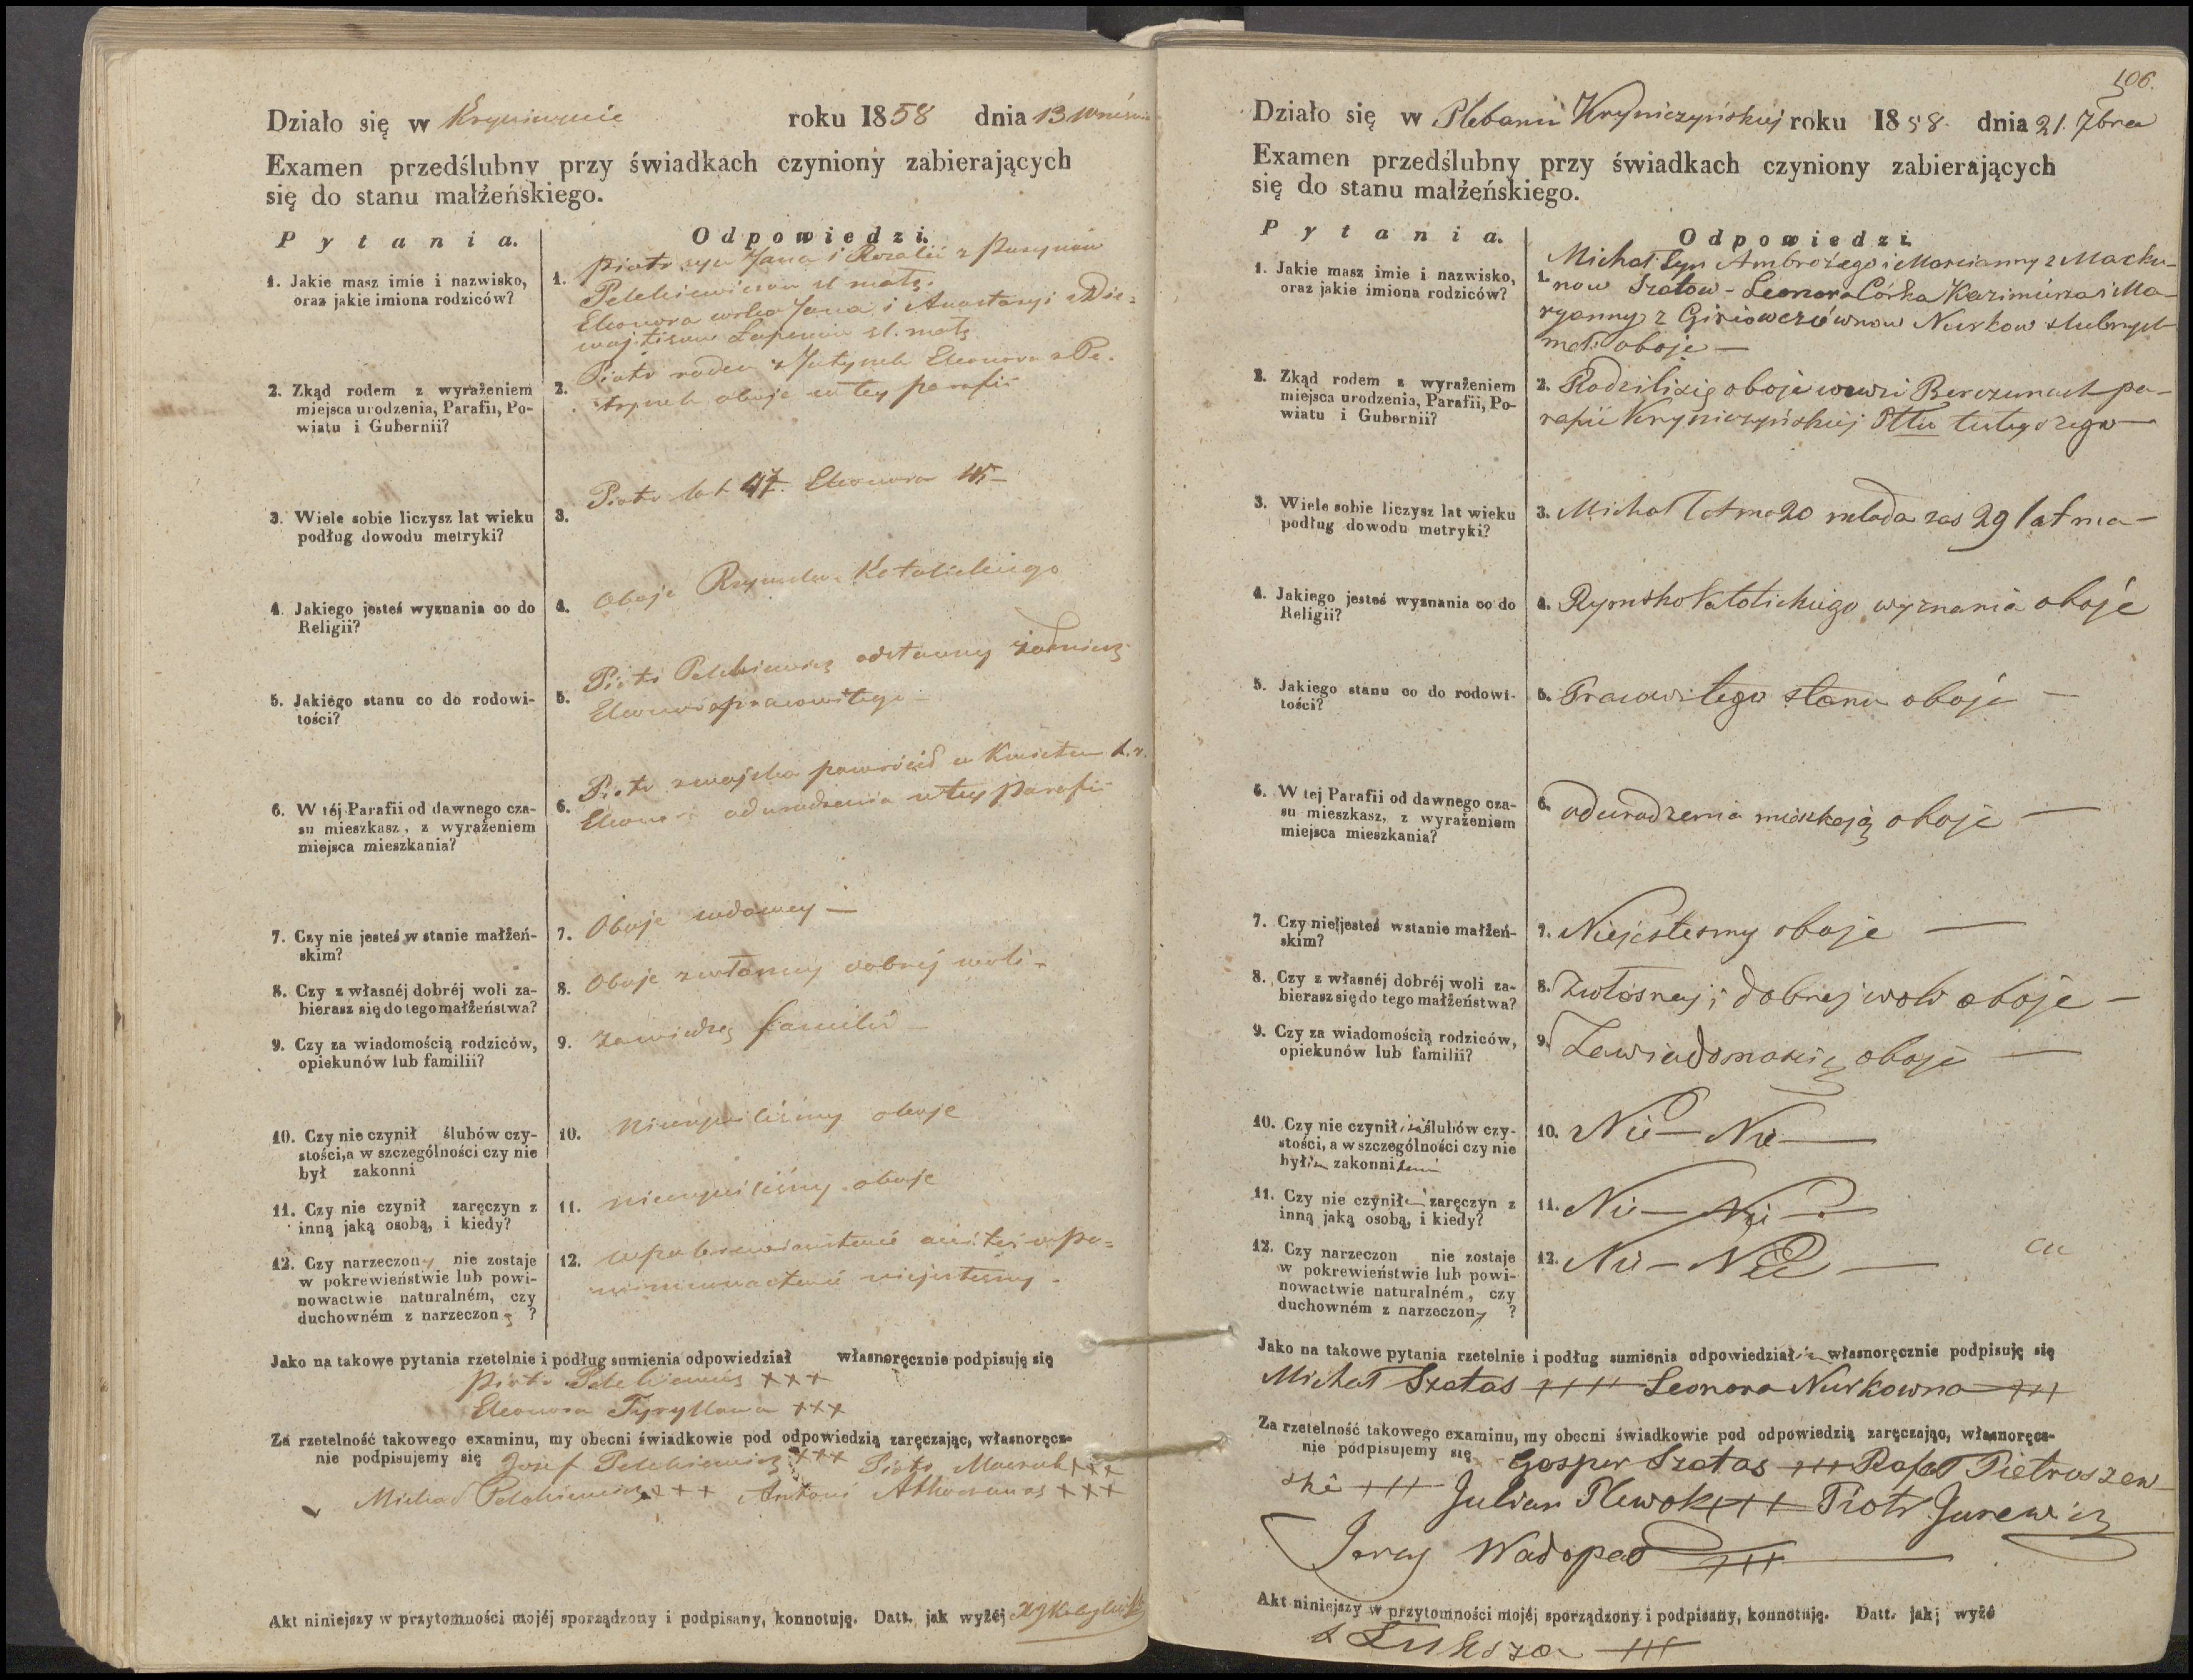 Działo się w Kryniczynie roku 1858 dnia 13 Września
Examen przedślubny przy świadkach czyniony zabierających
się do stanu małżeńskiego.
Pytania.
Odpowiedzi.
1. Jakie masz imie i nazwisko,
oraz jakie imiona rodziców?
1. Piotr syn Jana i Rozalii z
Pelchiewiczów sl. małż.
Eleonora corka Jana i Anastazyi z
sl. małż
2. Zkąd rodem z wyrażeniem
miejsca urodzenia, Parafii, Po-
wiatu i Gubernii?
2. Piotr rodem z Eleonora z Pe-
oboje w tey parafii
3. Wiele sobie liczysz lat wieku
podług dowodu metryki?
3. Piotr lat 47. Eleonora
4. Jakiego jesteś wyznania co do
Religii?
4. Oboje Rzymsko-Katolickiego
5. Jakiego stanu co do rodowi-
tości?
5. Piotr Pelchiewicz odstawny żołnierz
Eleonora pracowitego
6. W téj Parafii od dawnego cza-
su mieszkasz, z wyrażeniem
miejsca mieszkania?
6. Piotr z wojska powrócił w Kwietniu t.r.
Eleonora od urodzenia w tey Parafii
7. Czy nie jesteś w stanie małżeń-
skim?
7. Oboje wdowcy —
8. Czy z własnéj dobréj woli za-
bierasz się do tego małżeństwa?
8. Oboje z własney dobrej woli -
9. Czy za wiadomością rodziców,
opiekunów lub familii?
9. Za wiedzą familii
10. Czy nie czynił ślubów czy-
stości, a w szczególności czy nie
był zakonni
10. Nieczyniliśmy oboje
11. Czy nie czynił zaręczyn z
inną jaką osobą, i kiedy?
11. nieczyniliśmy oboje
12. Czy narzeczony nie zostaje
w pokrewieństwie lub powi-
nowactwie naturalném, czy
duchowném z narzeczoną ?
12. w pokrewieństwie ani też w po=
winnowactwie niejesteśmy -
Jako na takowe pytania rzetelnie i podług sumienia odpowiedział własnoręcznie podpisuję się
Piotr Pelchiewicz +++
Eleonora +++
Za rzetelność takowego examinu, my obecni świadkowie pod odpowiedzią zaręczając, własnoręcz-
nie podpisujemy się Jozef Pelchiewicz +++ Piotr +++
Michał Pelchiewicz +++ Antoni +++
Akt niniejszy w przytomności mojéj sporządzony i podpisany, konnotuję. Datt. jak wyżéj
106.
Działo się w Plebanii Kryniczyńskiej roku 1858. dnia 21. 7bra
Examen przedślubny przy świadkach czyniony zabierających
się do stanu małżeńskiego.
Pytania.
Odpowiedzi.
1. Jakie masz imie i nazwisko,
oraz jakie imiona rodziców?
1. Michał Syn Ambrożego i Marcianny z Macku-
now Szatow - Leonora Córka Kazimierza i Ma-
ryanny z Nurkow slubnych
mał. oboje —
2. Zkąd rodem z wyrażeniem
miejsca urodzenia, Parafii, Po-
wiatu i Gubernii?
2. Rodzili się oboje wewsi Berczunach pa-
rafii Kryniczyńskiej Pttu tutejszego —
3. Wiele sobie liczysz lat wieku
podług dowodu metryki?
3. Michał lat ma 20 młoda zas 29 lat ma —
4. Jakiego jesteś wyznania co do
Religii?
4. Rymsko Katolickiego wyznania oboje
5. Jakiego stanu co do rodowi-
tości?
5. Pracowitego stanu oboje —
6. W tej Parafii od dawnego cza-
su mieszkasz, z wyrażeniem
miejsca mieszkania?
6. od urodzenia mieszkają oboje —
7. Czy nie jesteś w stanie małżeń-
skim?
7. Niejestesmy oboje —
8. Czy z własnéj dobréj woli za-
bierasz się do tego małżeństwa?
8. Zwłasnej i dobrej woli oboje —
9. Czy za wiadomością rodziców,
opiekunów lub familii?
9. Zawiadomością oboje —
10. Czy nie czynił ślubów czy-
stości, a w szczególności czy nie
był zakonni
10. Nie — Nie —
11. Czy nie czynił zaręczyn z
inną jaką osobą, i kiedy?
11. Nie — Nie —
12. Czy narzeczon nie zostaje
w pokrewieństwie lub powi-
nowactwie naturalném, czy
duchowném z narzeczony ?
12. Nie — Nie —
Jako na takowe pytania rzetelnie i podług sumienia odpowiedział własnoręcznie podpisuję się
Michał Szatas ++++ Leonora Nurkowna +++
Za rzetelność takowego examinu, my obecni świadkowie pod odpowiedzią zaręczając, własnoręcz-
nie podpisujemy się Gasper Szatas +++ Rafał Pietruszew-
ski +++ Julian Plewok +++ Piotr Jurewicz
Jerzy Wadopad +++
Akt niniejszy w przytomności mojéj sporządzony i podpisany, konnotuję. Datt. jak wyżé